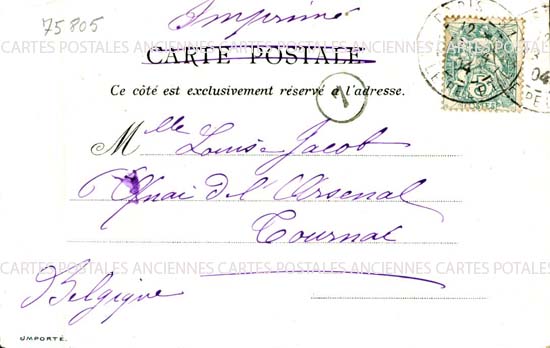 75805
Imprimé
CARTES POSTALES ANCIENNES CARTES POSTALES ANCIENNES CARTES POSTALES
CARTE POSTALE
Ce côté est exclusivement réservé à l'adresse.
1
PARIS
12
04
04
Mlle Louise Jacob
Quai de l'Arsenal
Tournai
CARTES POSTALES ANCIENNES CARTES POSTALES ANCIENNES CARTES POTALES
Belgique
IMPORTÉ.